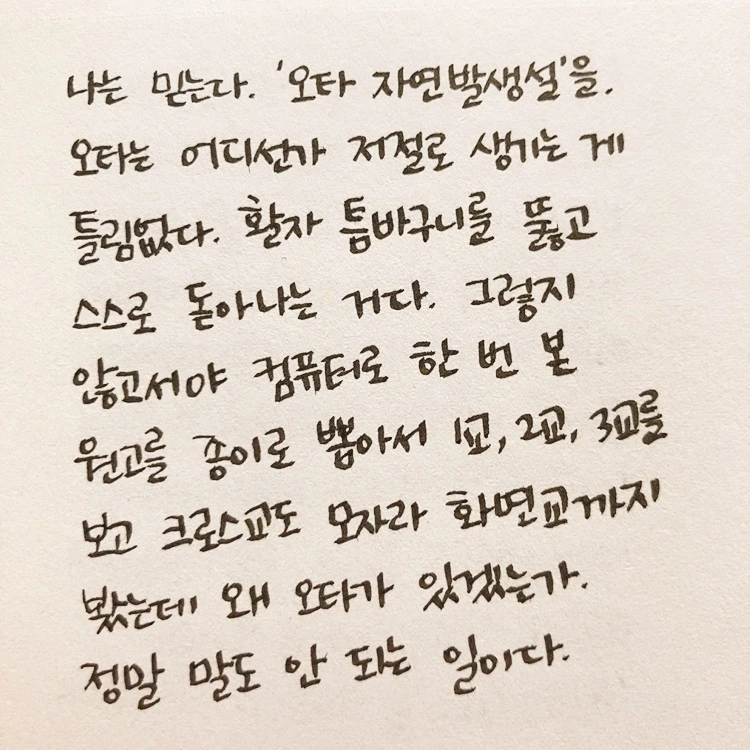 나는 믿는다. '오타 자연발생설'을.
오타는 어디선가 저절로 생기는 게
틀림없다. 활자 틈바구니를 뚫고
스스로 돋아나는 거다. 그렇지
않고서야 컴퓨터로 한 번 본
원고를 종이로 뽑아서 1교, 2교, 3교를
보고 크로스교도 모자라 화면교까지
봤는데 왜 오타가 있겠는가.
정말 말도 안 되는 일이다.